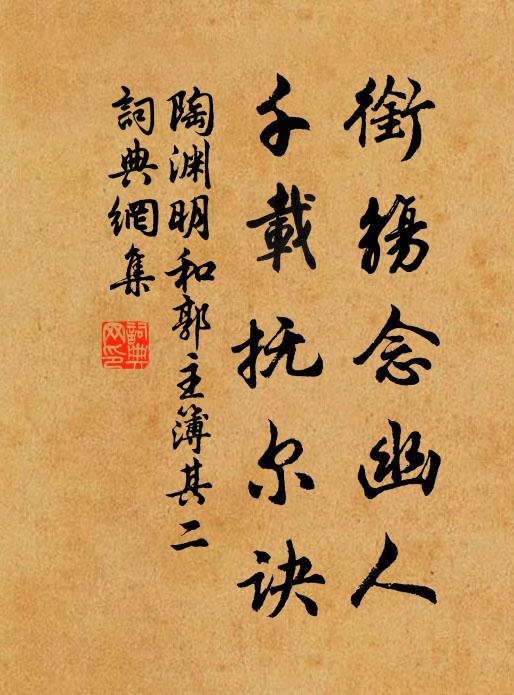 銜觴念幽人
千載抚尔诀
陶渊明和郭主簿其二
詞典網集
詞典网印